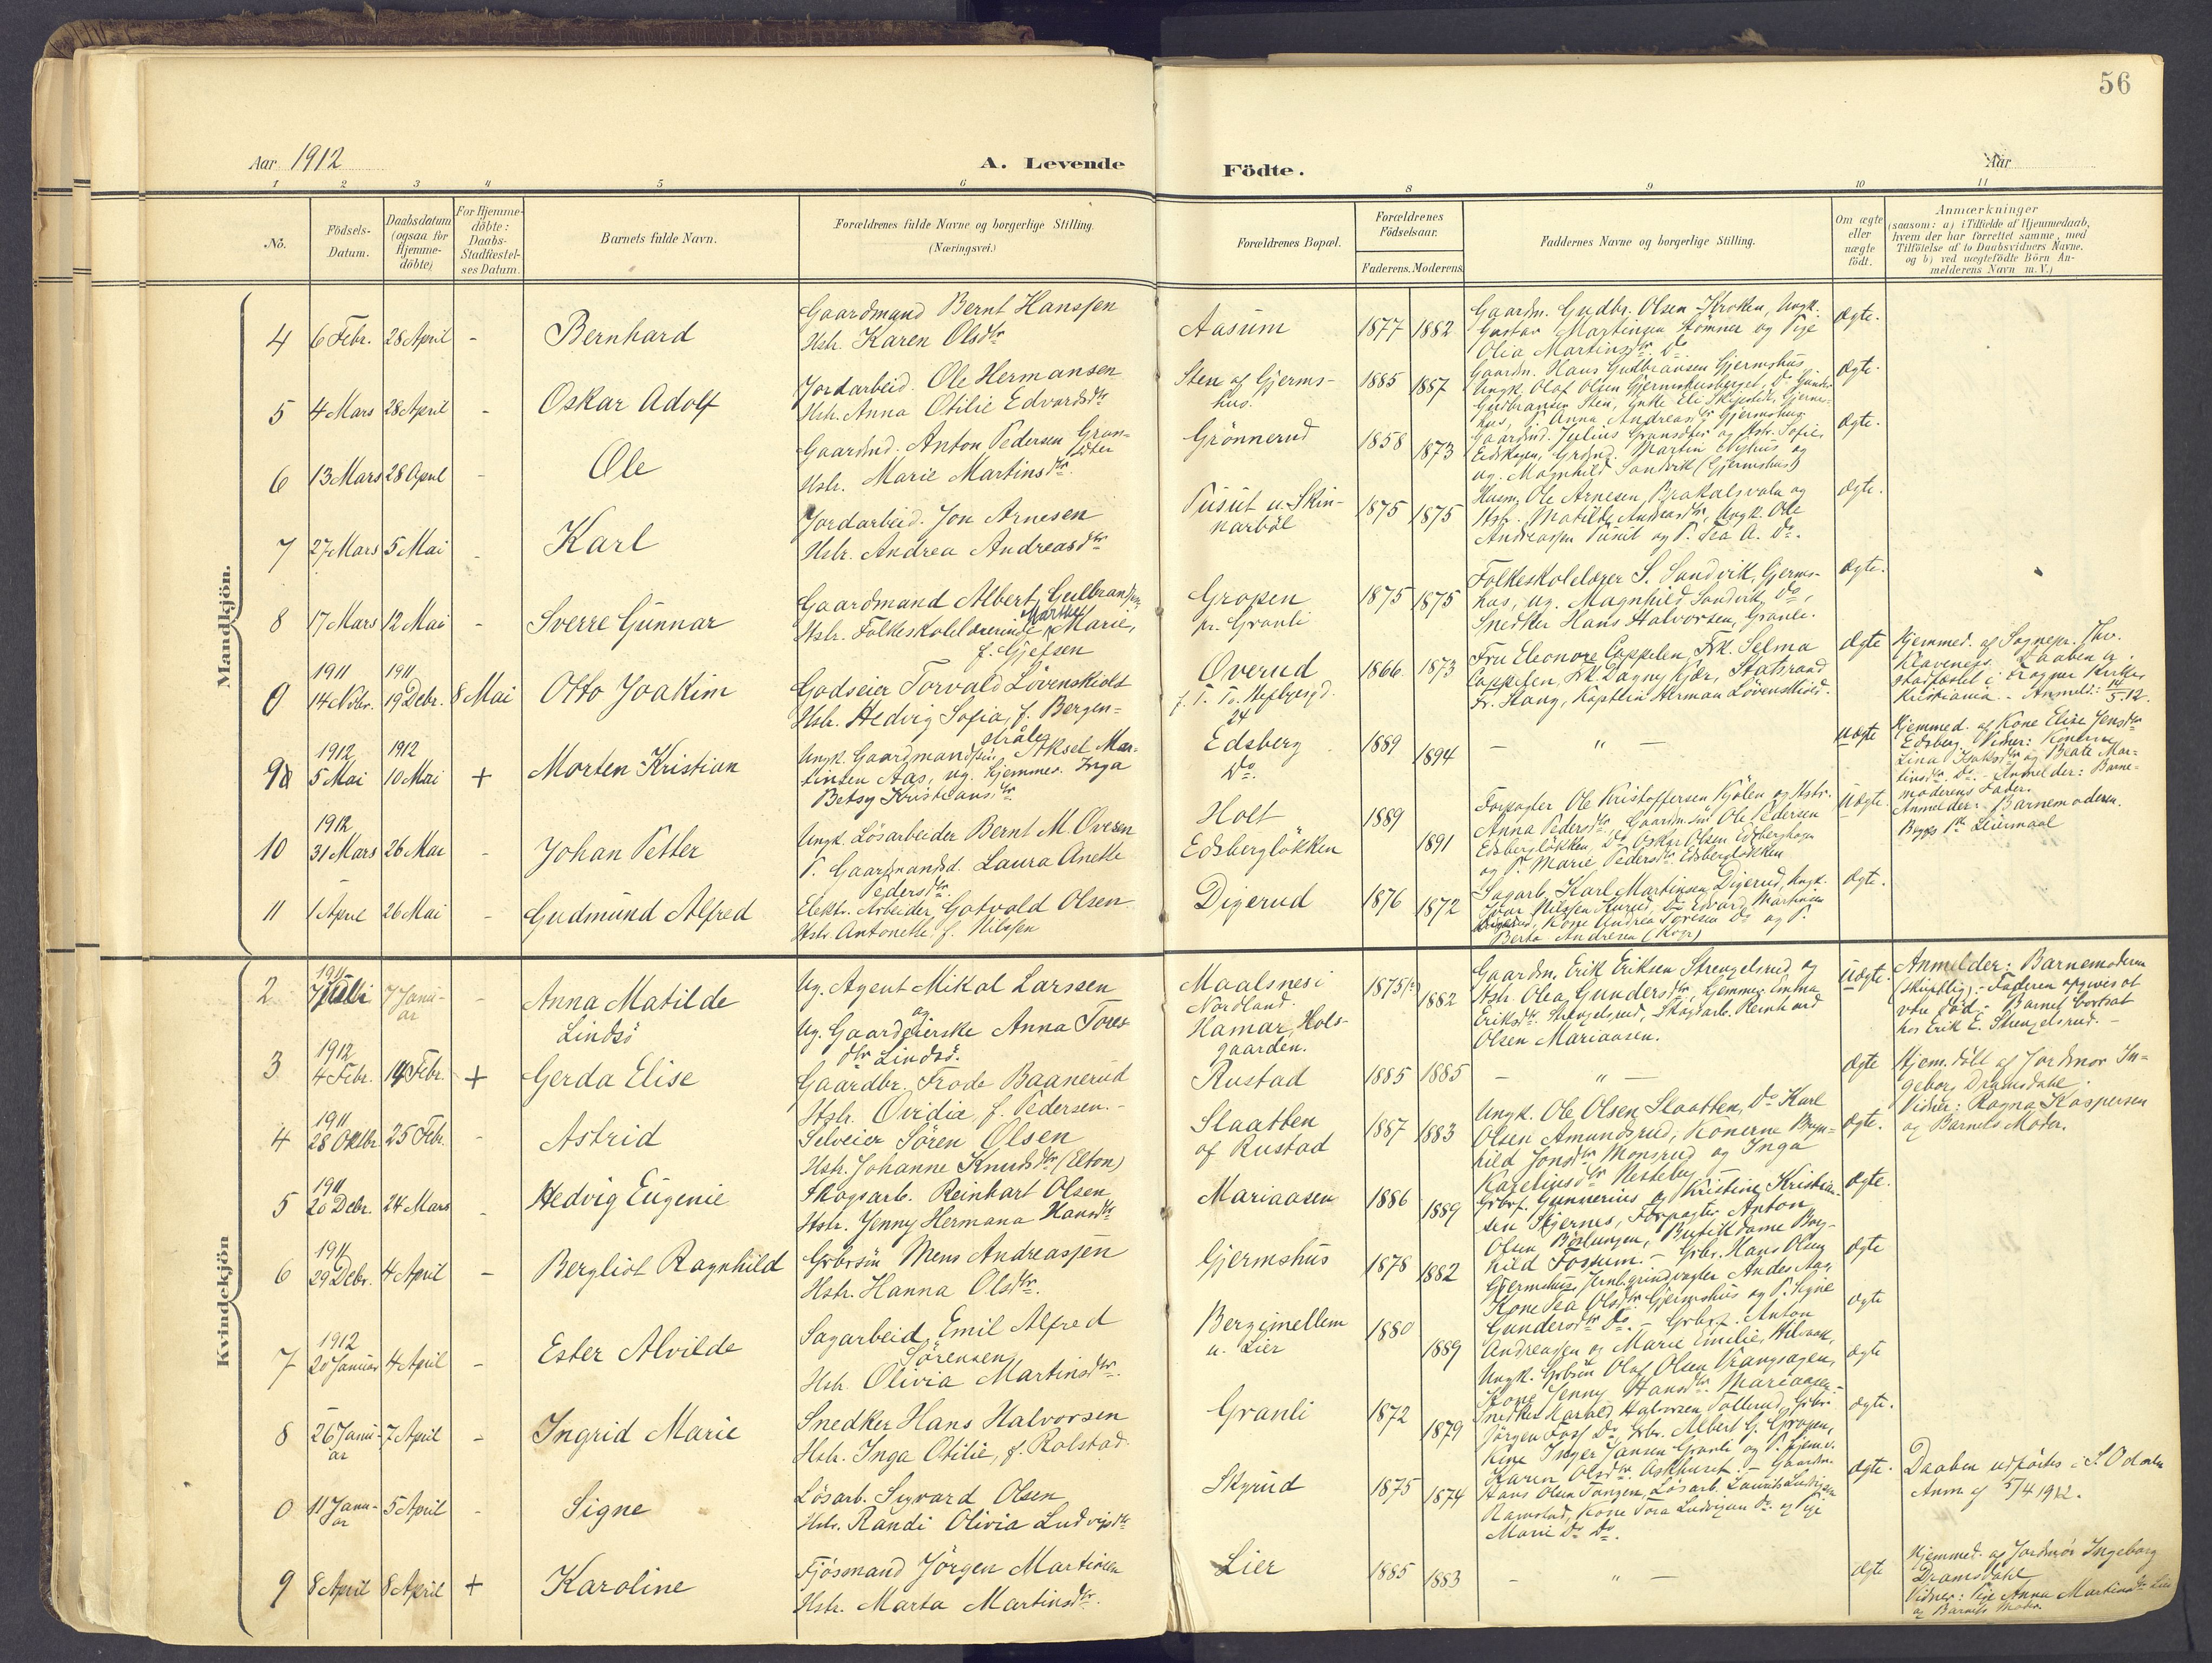 56
Aar 1912
A. Levende
Födte.
Aar
1 2 3 4 5 6 8 9 10 11
No.
Födsels-
Datum.
Daabsdatum
(ogsaa for
Hjemme-
döbte)
For Hjemme-
döbte:
Daabs-
Stadfæstel-
ses Datum.
Barnets fulde Navn.
Forældrenes fulde Navne og borgerlige Stilling.
(Næringsvei.)
Forældrenes Bopæl.
Forældrenes
Födselsaar.
Faderens. Moderens.
Faddernes Navne og borgerlige Stilling.
Om ægte
eller
uægte
födt.
Anmærkninger
(saasom: a) i Tilfælde af Hjemmedaab,
hvem der har forrettet samme, med
Tilföielse af to Daabsvidners Navne.
og b) ved uægtefödte Börn An-
melderens Navn m. V.)
Mandkjön.
4 6 Febr. 28 April - Bernhard
Gaardmand Bernt Hanssen
Hstr. Karen Olsdtr
Aasum 1877 1882
Gaardm. Gudbr. Olsen Kroken, Ungk.
Gustav Martinsen Stömner og Pige
Olia Martinsdtr Do.
ægte.
5 4 Mars 28 April - Oskar Adolf
Jordarbeid. Ole Hermansen
Hstr. Anna Otilie Edvardsdtr
Sten af Gjerms-
hus.
1885 1887
Gaardm. Hans Gudbransen Gjermshus
Ungk. Olaf Olsen Gjermshusberget, Do
Gudbransen Sten, Enke Eli
hus, P. Anna Andreasdtr Gjermshus
ægte.
6 13 Mars 28 April - Ole
Gaardmd. Anton Pedersen Gran-
Hstr. Marie Martinsdtr
Grönnerud 1858 1873
Gaardmd. Julius og Hstr. Sofie,
Eidskogen, Grdmd. Martin Nyhus og
ug. Magnhild Sandvik (Gjermshus)
ægte.
7 27 Mars 5 Mai - Karl
Jordarbeid. Jon Arnesen
Hstr. Andrea Andreasdtr
Pusut u. Skin-
narböl
1875 1875
Husm. Ole Arnesen, og
Hstr. Matilde Andreasdtr, Ungk. Ole
Andreassen Pusut og P. Tea A. Do.
ægte.
8 17 Mars 12 Mai - Sverre Gunnar
Gaardmand Albert Gulbransen
Hstr. Folkeskolelærerinde Marthe Marie,
f. Gjefsen
Gropen
pr. Granli
1875 1875
Folkeskolelærer S. Sandvik, Gjerms-
hus, ug. Magnhild Sandvik Do,
Snedker Hans Halvorsen, Granli.
ægte.
0 1911 14 Novbr. 1911 19 Debr. 8 Mai Otto Joakim
Godseier Torvald Lövenskiold
Hstr. Hedvig Sofia, f. Bergen-
stråle
Överud
1866 1873
Fru Eleonore Cappelen, Frk. Selma
Cappelen, Frk. Dagny Kjær, Statsraad
Fr. Stang, Kaptein Herman Lövenskiold.
ægte
Hjemmed. af Sognepr. Thv.
Klaveness. Daaben er
stadfæstet i Frogner Kirke,
Kristiania. - Anmeld: 14/5.12.
9 1912 5 Mai 1912 10 Mai + Morten Kristian
Ungk. Gaardmandssön Aksel Mar-
tinsen Aas, ug. Hjemmev. Inga
Betsy Kristiansdtr
Edsberg
Do.
1889 1894
- " -
uægte
Hjemmed. af Kone Elise Jensdtr
Edsberg. Vidner: Konerne
Lina Isaksdtr og Beate Mar-
tinsdtr Do. - Anmelder: Barne-
moderens Fader.
10 1912 31 Mars 26 Mai - Johan Petter
Ungk. Lösarbeider Bernt M. Ovesen
P. Gaardmandsd. Laura Anette
Pedersdtr
Holt
Edsberglökken
1889 1891
Forpagter Ole Kristoffersen Kjölen og Hstr.
Anna Pedersdtr, Gaardm.sön Ole Pedersen
Edsberglökken, Do Oskar Olsen Edsberghagen
og P. Marie Pedersdtr Edsberglökken
uægte.
Anmelder: Barnemoderen.
Begges 1ste Leiermaal
11 1 April 26 Mai - Gudmund Alfred
Elektr. Arbeider Gotvald Olsen
Hstr. Antonette f. Nilssen
Digerud 1876 1872
Sagarb. Karl Martinsen Digerud, Ungk.
Ivar Nilssen Do Edvard Martinsen
Digerud, Kone Andrea Toresen Do og P.
Berta Andresen
ægte.
Kvindekjön
2 1911 7 Juli 7 Janu-
ar - Anna Matilde
Lindsö
Ug. Agent Mikal Larssen
og
Ug. Gaardeierske Anna Tores-
dtr Lindsö.
Maalsnes i
Nordland.
Hamar, Hols-
gaarden.
1875 1882
Gaardm. Erik Eriksen Strengelsrud og
Hstr. Olea Gundersdtr, Hjemmev. Emma
Eriksdtr Strengelsrud, Skogsarb. Reinhard
Olsen Mariaasen.
uægte.
Anmelder: Barnemoderen
(skriftlig). - Faderen opgives at
være död. - Barnet bortsat
hos Erik E. Strengelsrud. -
3 1912 4 Febr. 14 Febr. + Gerda Elise
Gaardbr. Frode Baanerud
Hstr. Ovidia, f. Pedersen. -
Rustad 1885 1885
- " -
ægte
Hjem.döbt af Jordmor In-
geborg Dramsdahl.
Vidner: Ragna Kaspersen
og Barnets Moder.
4 1911 28 Oktbr. 25 Febr. - Astrid
Selveier Sören Olsen
Hstr. Johanne Knudsdtr (Elton)
Slaatten
af Rustad
1887 1883
Ungk. Ole Olsen Slaatten, Do Karl
Olsen Amundsrud, Konerne Bryn-
hild Jonsdtr Monsrud og Inga
Kareliusdtr Nesteby
ægte.
5 1911 20 Debr. 24 Mars - Hedvig Eugenie
Skogsarb. Reinhart Olsen
Hstr. Jenny Hermana Hansdtr
Mariaasen 1886 1889
Grbrf. Gunnerius og Kristine Kristian-
sen Skjernes, Forpagter Anton
Olsen Börlungen, Butikdame Borg-
hild Fossum. -
ægte.
6 1911 29 Debr. 4 April - Bergliot Ragnhild
Grbrsön Mens Andreassen
Hstr. Hanna Olsdtr.
Gjermshus 1878 1882
Grbr. Hans Olsen
Gjermshus, Jernb.grindvogter Andes Aas,
Kone Tea Olsdtr Gjermshus og P. Signe
Gundersdtr Do. -
ægte
7 1912 20 Januar 4 April - Ester Alvilde
Sagarbeid. Emil Alfred
Sörensen
Hstr. Olivia Martinsdtr.
Bergimellem
u. Lier
1880 1889
Grbrf. Anton
Andreassen og Marie Emilie,
Ungk. Grbsön Olaf Olsen Vrangsagen,
Kone Jenny Hansdtr Mariaasen. -
ægte
8 26 Janu-
ar 7 April - Ingrid Marie
Snedker Hans Halvorsen
Hstr. Inga Otilie, f. Rolstad
Granli 1872 1879
Snedker Harald Halvorsen Tollerud, Grbr.
Jörgen Foss Do, Grbr. Albert G. Gropen,
Kone Inger Jansen Granli og P. Hjemv.
Karen Olsdtr -
ægte
0 11 Janu-
ar 5 April - Signe
Lösarb. Sigvard Olsen
Hstr. Randi Olivia Ludvigsdtr
Skyrud 1875 1874
Gaardm.
Hans Olsen Tangen, Lösarb. Laurits Ludvigsen
Ramstad, Kone Tora Ludvigsen Do og Pige
Marie Do Do.
ægte.
Daaben udförtes i S. Odalen
Anm. 5/4 1912.
9 8 April 8 April + Karoline
Fjösmand Jörgen Martinsen
Hstr. Marta Martinsdtr.
Lier 1885 1883
- " -
ægte
Hjemmed. af Jordmor Ingeborg
Dramsdahl
Vidner: Pige Anna Martinsdtr Lier
og Barnets Moder.